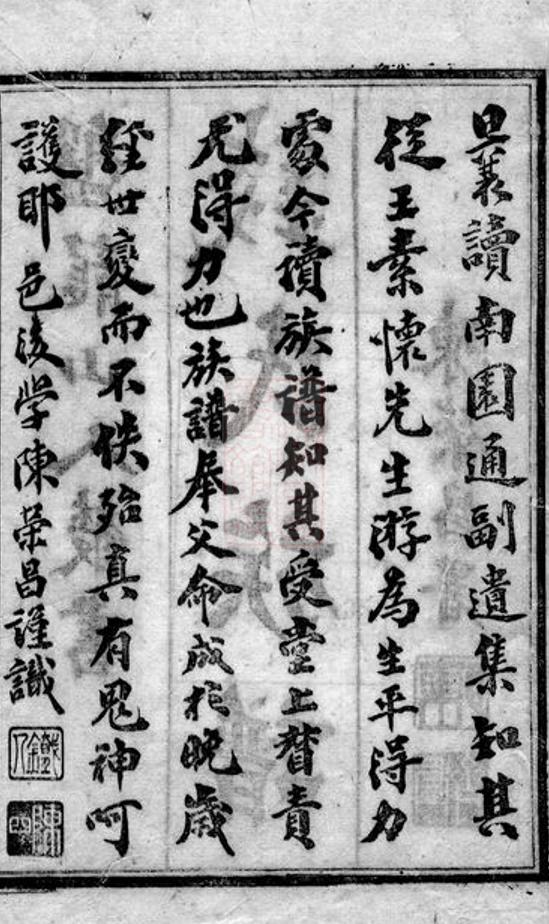 旦襄讀南園通副遺集知其
從王素懷先生游為生平得力
處今讀族譜知其受堂上督責
尤得力也族譜奉父命成於晚歲
經世變而不佚殆真有鬼神呵
護耶邑後學陳榮昌謹識